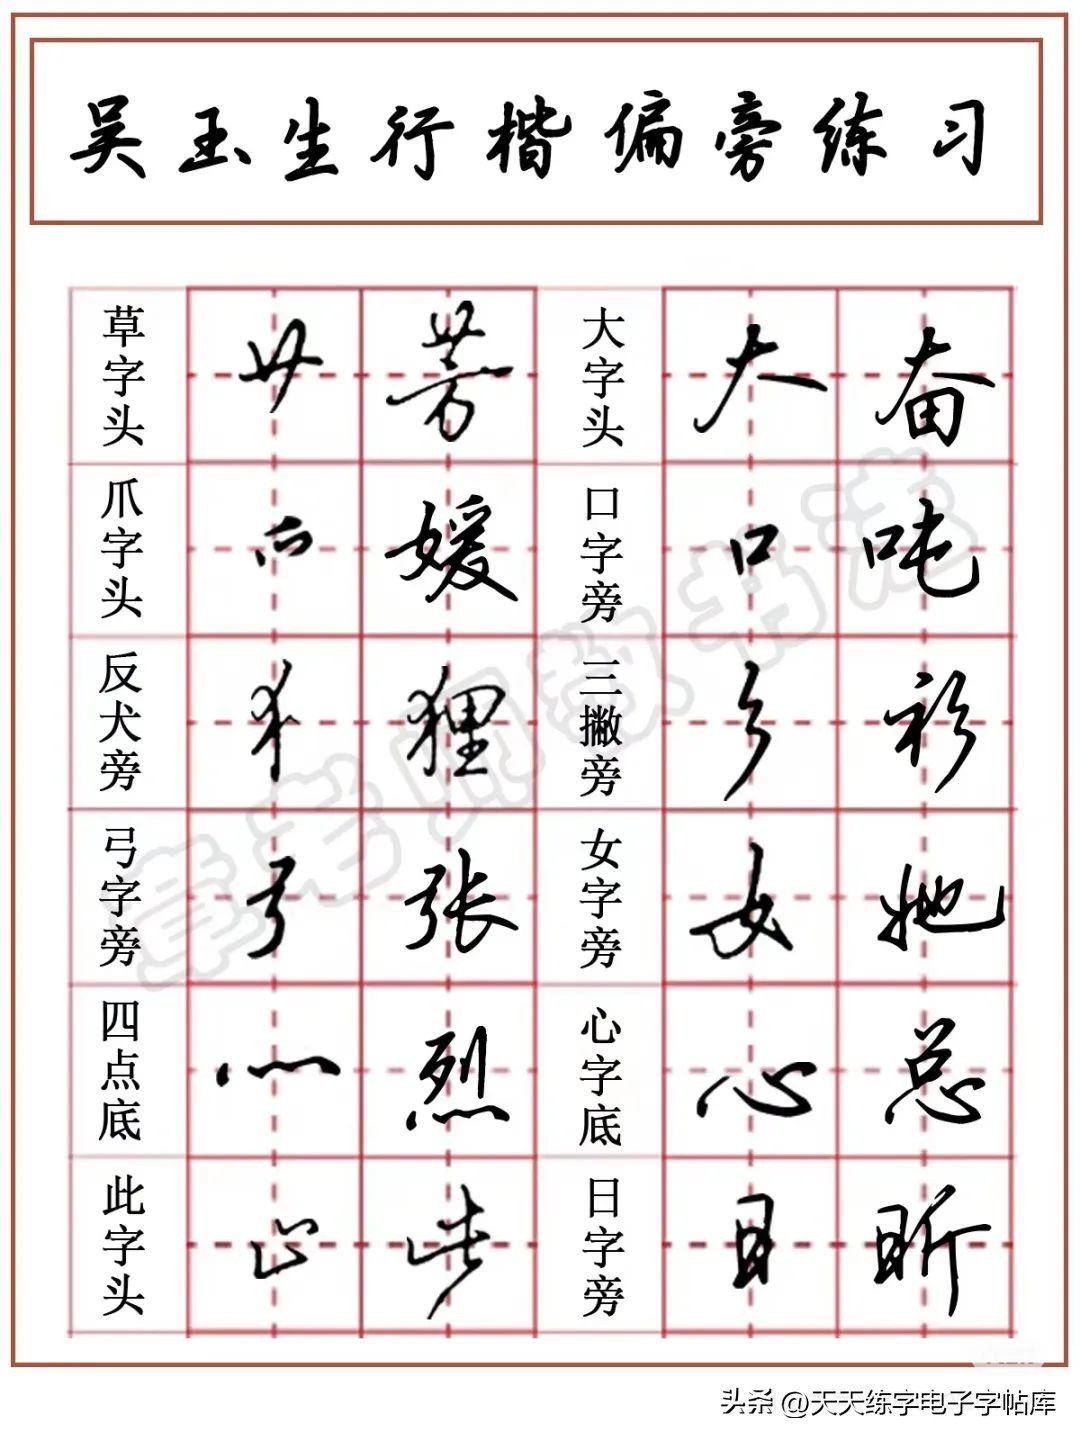 吴玉生行楷偏旁练习
草字头 艹 芳 大字头 大 奋
爪字头 爫 媛 口字旁 口 吨
反犬旁 犭 狸 三撇旁 彡 衫
弓字旁 弓 张 女字旁 女 她
四点底 灬 烈 心字底 心 总
此字头 止 些 日字旁 日 昕
章老师教书法
头条 @天天练字电子字帖库